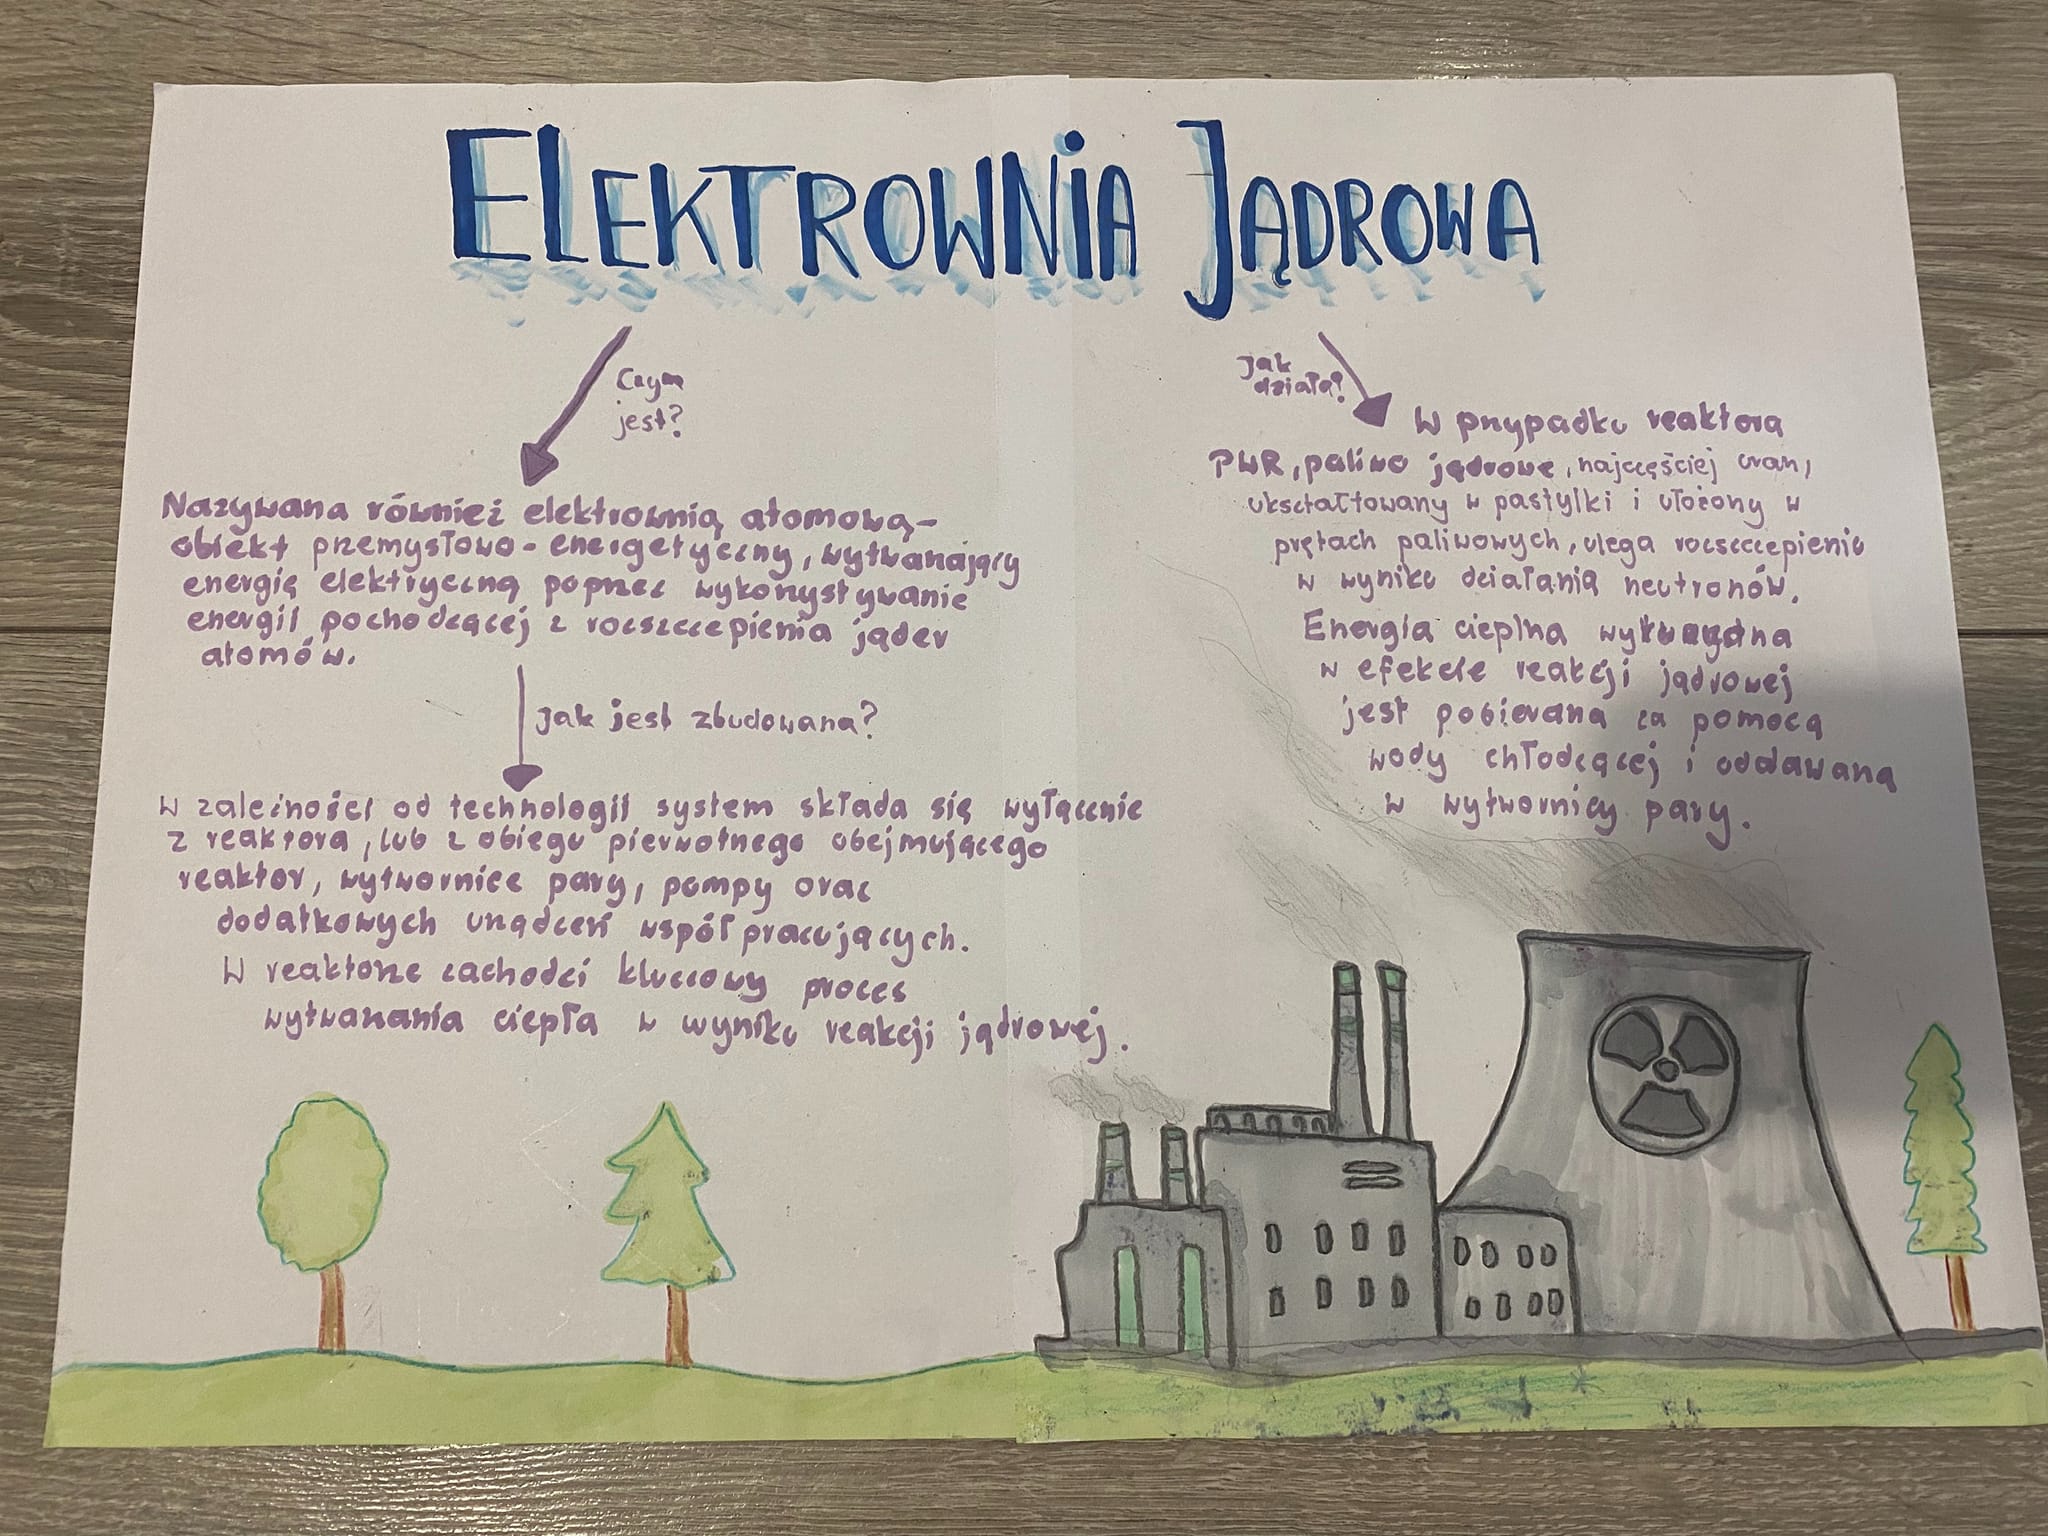 ELEKTROWNIA JĄDROWA
Czym
jest?
Nazywana również elektrownią atomową-
obiekt przemysłowo-energetyczny, wytwarzający
energię elektryczną poprzez wykorzystywanie
energii pochodzącej z rozszczepienia jąder
atomów.
Jak jest zbudowana?
W zależności od technologii system składa się wyłącznie
z reaktora, lub z obiegu pierwotnego obejmującego
reaktor, wytwornice pary, pompy oraz
dodatkowych urządzeń współpracujących.
W reaktorze zachodzi kluczowy proces
wytwarzania ciepła w wyniku reakcji jądrowej.
Jak
działa?
W przypadku reaktora
PWR, paliwo jądrowe, najczęściej uran,
ukształtowany w pastylki i ułożony w
prętach paliwowych, ulega rozszczepieniu
w wyniku działania neutronów.
Energia cieplna
w efekcie reakcji jądrowej
jest pobierana za pomocą
wody chłodzącej i oddawana
w wytwornicy pary.